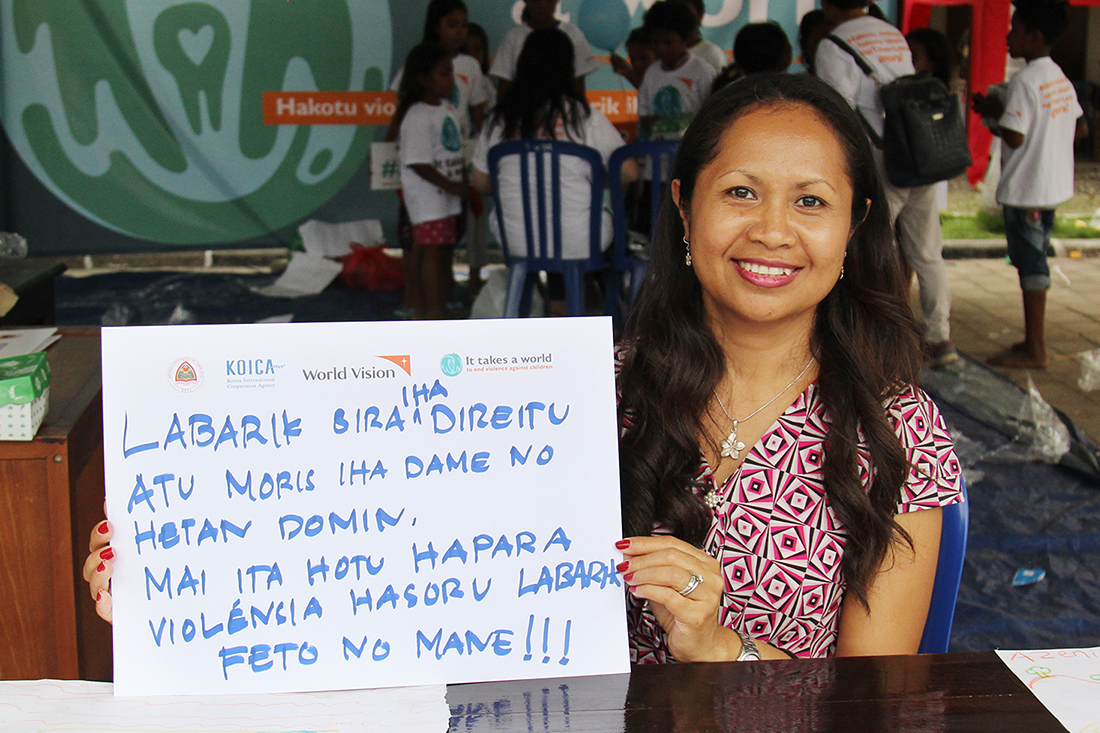 Hakotu vio
rik i
KOICA
Korea International
Cooperation Agency
World Vision
It takes a world
to end violence against children
LABARIK BIRA IHA DIREITU
ATU MORIS IHA DAME NO
HETAN DOMIN.
MAI ITA HOTU HAPARA
VIOLÉNSIA HASORU LABARIK
FETO NO MANE!!!